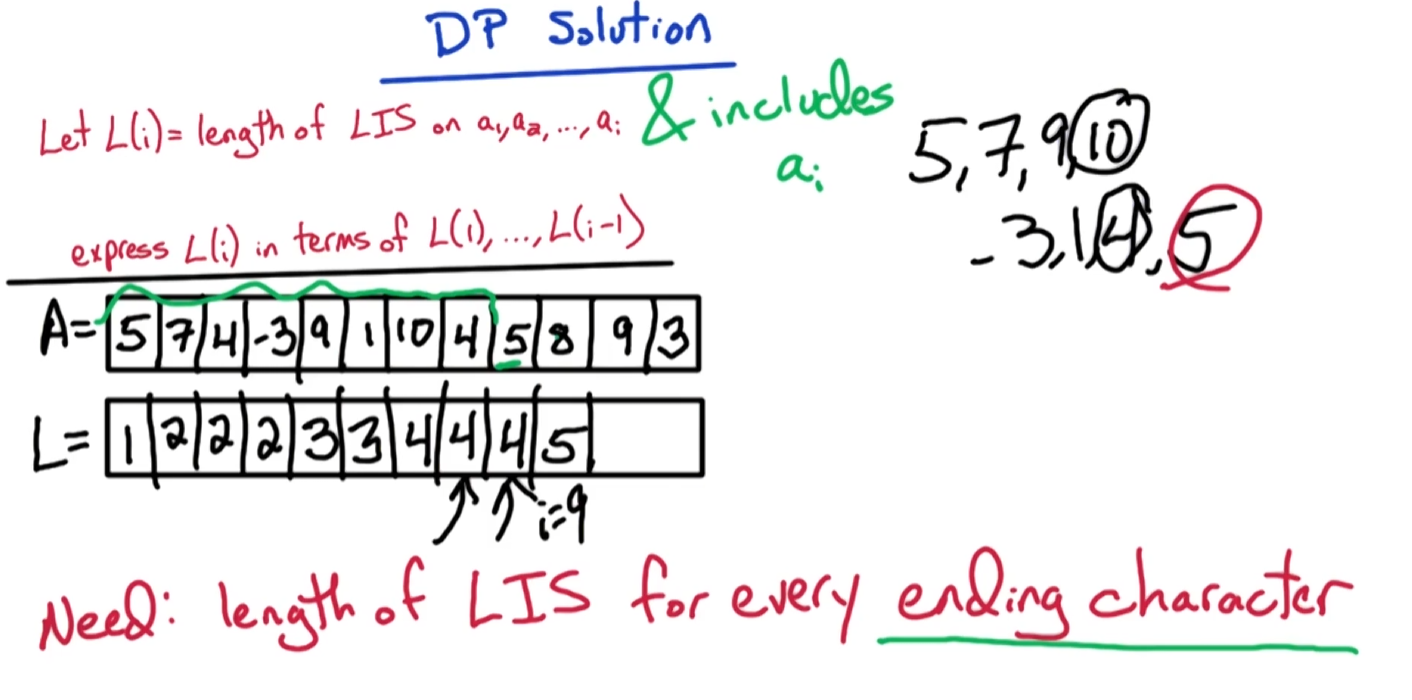 DP Solution
Let L(i)= length of LIS on a₁,a₂,...,aᵢ & includes aᵢ
5,7,9,10
-3,1,4,5
express L(i) in terms of L(1),...,L(i-1)
A= 5 7 4 -3 9 1 10 4 5 8 9 3
L= 1 2 2 2 3 3 4 4 4 5
i=9
Need: length of LIS for every ending character